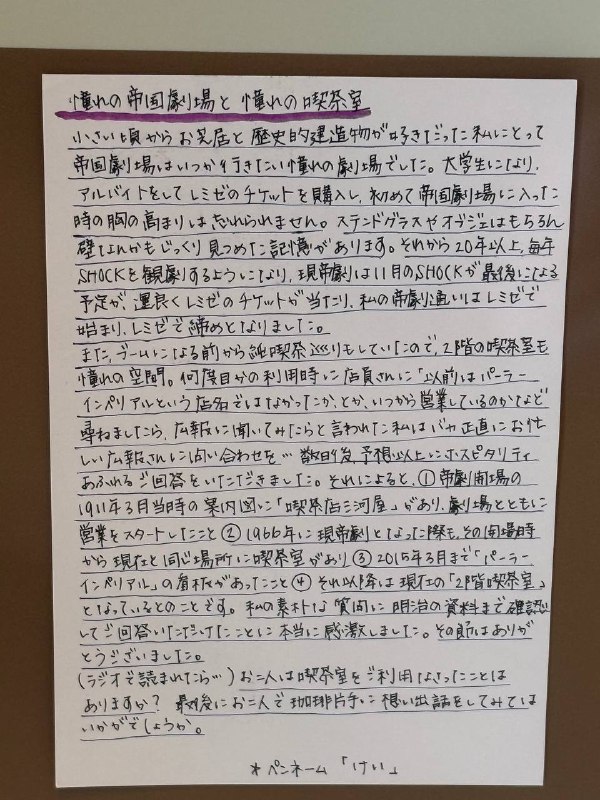 憧れの帝国劇場と 憧れの喫茶室
小さい頃からお芝居と歴史的建造物が好きだった私にとって
帝国劇場はいつか行きたい憧れの劇場でした。大学生になり、
アルバイトをしてレミゼのチケットを購入し、初めて帝国劇場に入った
時の胸の高まりは忘れられません。ステンドグラスやオブジェはもちろん
壁なんかもじっくり見つめた記憶があります。それから20年以上、毎年
SHOCKを観劇するようになり、現帝劇は11月のSHOCKが最後になる
予定が、運良くレミゼのチケットが当たり、私の帝劇通いはレミゼで
始まり、レミゼで締めとなりました。
また、ブームになる前から純喫茶巡りもしていたので、2階の喫茶室も
憧れの空間。何度目かの利用時に店員さんに「以前はパーラー
インペリアルという店名ではなかったか、とか、いつから営業しているのかなど
尋ねましたら、広報に聞いてみたらと言われた私はバカ正直にお忙
しい広報さんに問い合わせを…数日後、予想以上にホスピタリティ
あふれるご回答をいただきました。それによると、①帝劇開場の
1911年3月当時の案内図に「喫茶店三河屋」があり、劇場とともに
営業をスタートしたこと②1966年に現帝劇となった際も、その開場時
から現在と同じ場所に喫茶室があり③2015年3月まで「パーラー
インペリアル」の看板があったこと④それ以降は現在の「2階喫茶室」
となっているとのことです。私の素朴な質問に明治の資料まで確認
してご回答いただけたことに本当に感激しました。その節はありが
とうございました。
(ラジオで読まれたら…)お二人は喫茶室をご利用なさったことは
ありますか? 最後にお二人で珈琲片手に想い出話をしてみては
いかがでしょうか。
*ペンネーム「けい」